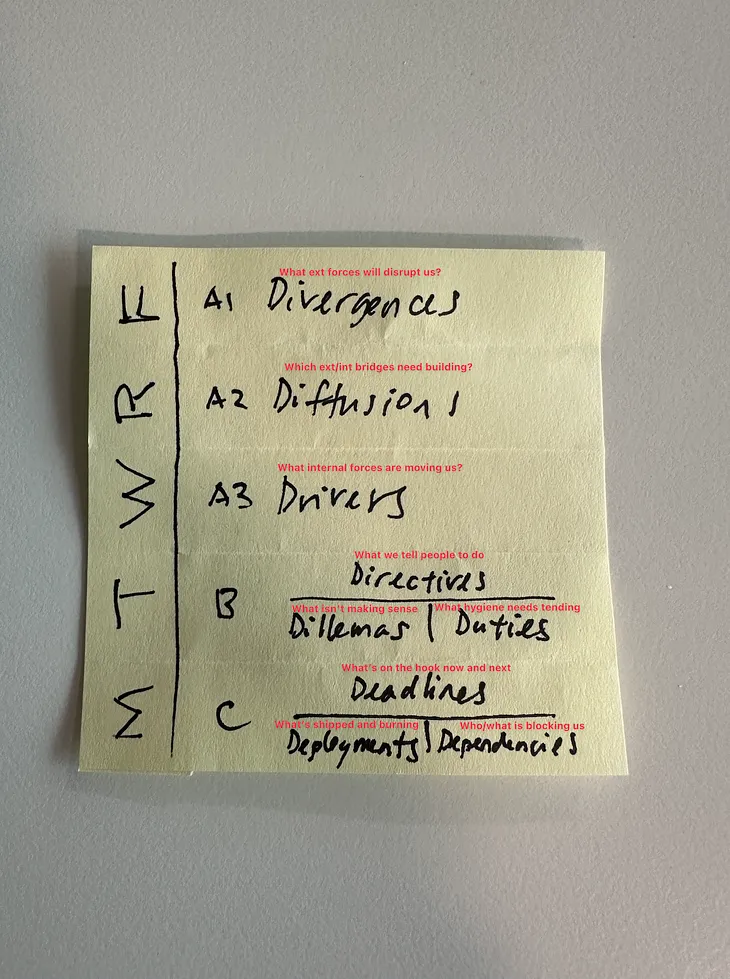 What ext forces will disrupt us?
F A1 Divergences
Which ext/int bridges need building?
R A2 Diffusions
What internal forces are moving us?
W A3 Drivers
What we tell people to do
Directives
T B
What isn't making sense What hygiene needs tending
Dillemas | Duties
What's on the hook now and next
Deadlines
M C
What's shipped and burning Who/what is blocking us
Deployments | Dependencies